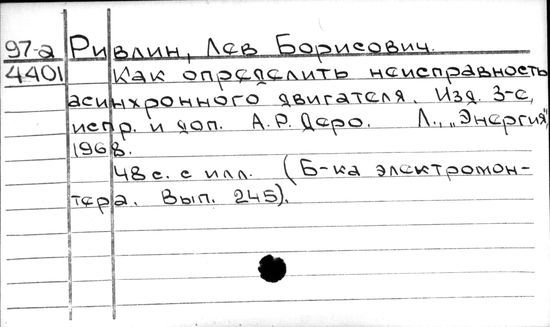 97-2 Ривлин, Лев Борисович.
4401 Как определить неисправность
асинхронного двигателя. Изд. 3-е,
испр. и доп. А.Р. Деро. Л., „Энергия",
1968.
48 с. с илл. (Б-ка электромон-
тера. Вып. 245).